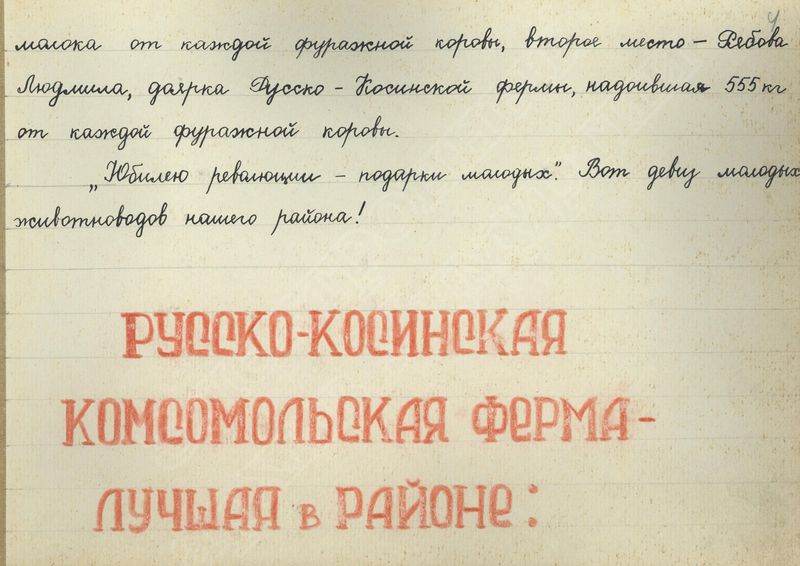 молока от каждой фуражной коровы, второе место – Рябова
Людмила, доярка Русско – Косинской фермы, надоившая 555 кг
от каждой фуражной коровы.
„Юбилею революции – подарки молодых". Вот девиз молодых
животноводов нашего района!
РУССКО-КОСИНСКАЯ
КОМСОМОЛЬСКАЯ ФЕРМА-
ЛУЧШАЯ в РАЙОНЕ: